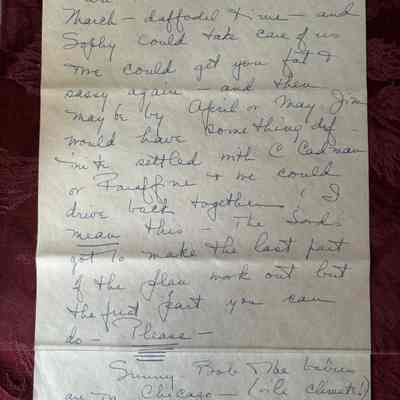 March – daffodil time – and
Sophy could take care of us
& we could get you fat &
sassy again – and then
maybe by April or May Jim
would have something def –
inite settled with C
or Paraffine & we could
drive back together! I
mean this – The Lord's
got to make the last part
of the plan work out but
the first part you can
do – Please –
Sunny Bob & the babies
are in Chicago – (vile climate!)